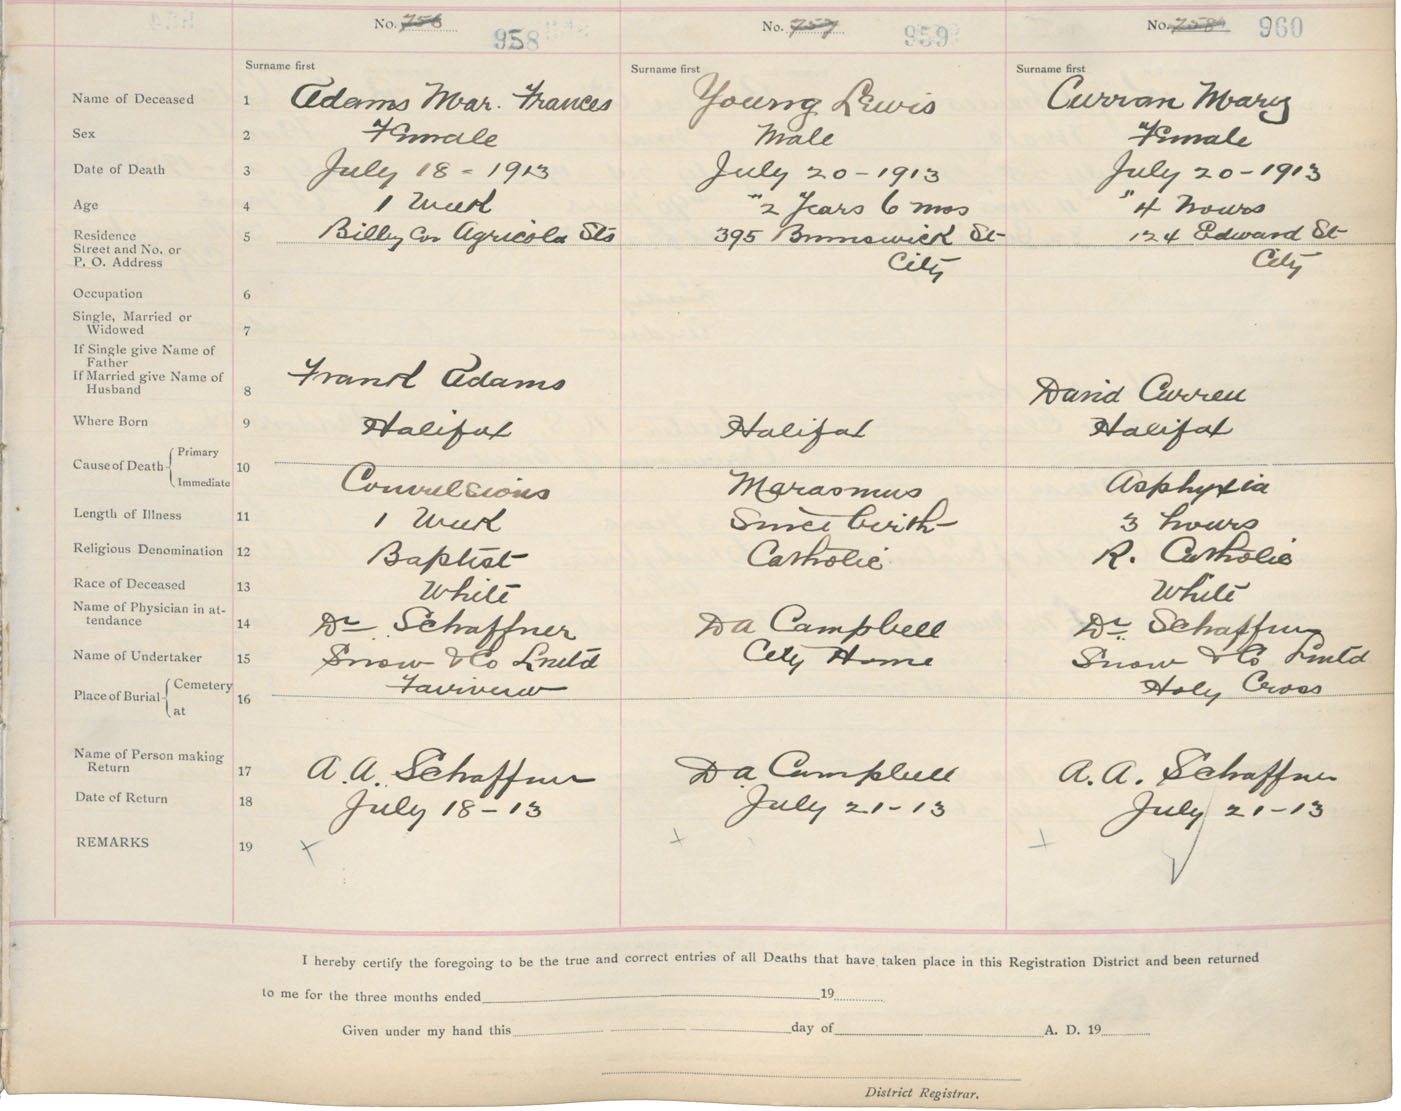 No. 756 No. 757 No. 758
958 959 960
Surname first Surname first Surname first
Name of Deceased 1 Adams Mar. Frances Young Lewis Curran Mary
Sex 2 Female Male Female
Date of Death 3 July 18 - 1913 July 20 - 1913 July 20 - 1913
Age 4 1 Week "2 Years 6 mos "4 hours
Residence 5 Bilby Cor Agricola Sts 395 Brunswick St 124 Edward St
Street and No. or
P. O. Address City City
Occupation 6
Single, Married or
Widowed 7
If Single give Name of
Father
If Married give Name of Frank Adams
Husband 8 David Curren
Where Born 9 Halifax Halifax Halifax
Cause of Death { Primary
Immediate 10 Convulsions Marasmus Asphyxia
Length of Illness 11 1 Week Since birth 3 hours
Religious Denomination 12 Baptist Catholic R. Catholic
Race of Deceased 13 White White
Name of Physician in at-
tendance 14 Dr Schaffner D A Campbell Dr. Schaffner
Name of Undertaker 15 Snow & Co Lmtd City Home Snow & Co Lmtd
Place of Burial { Cemetery Fairview Holy Cross
at 16
Name of Person making
Return 17 A. A. Schaffner D A Campbell A. A. Schaffner
Date of Return 18 July 18 - 13 July 21 - 13 July 21 - 13
REMARKS 19 x x x
I hereby certify the foregoing to be the true and correct entries of all Deaths that have taken place in this Registration District and been returned
to me for the three months ended 19
Given under my hand this day of A. D. 19
District Registrar.